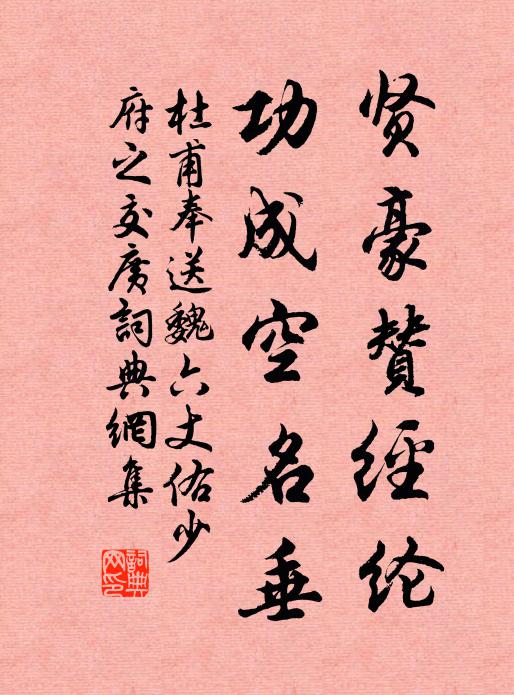 贤豪赞經纶
功成空名垂
杜甫奉送魏六丈佑少
府之交廣詞典網集
詞典网印